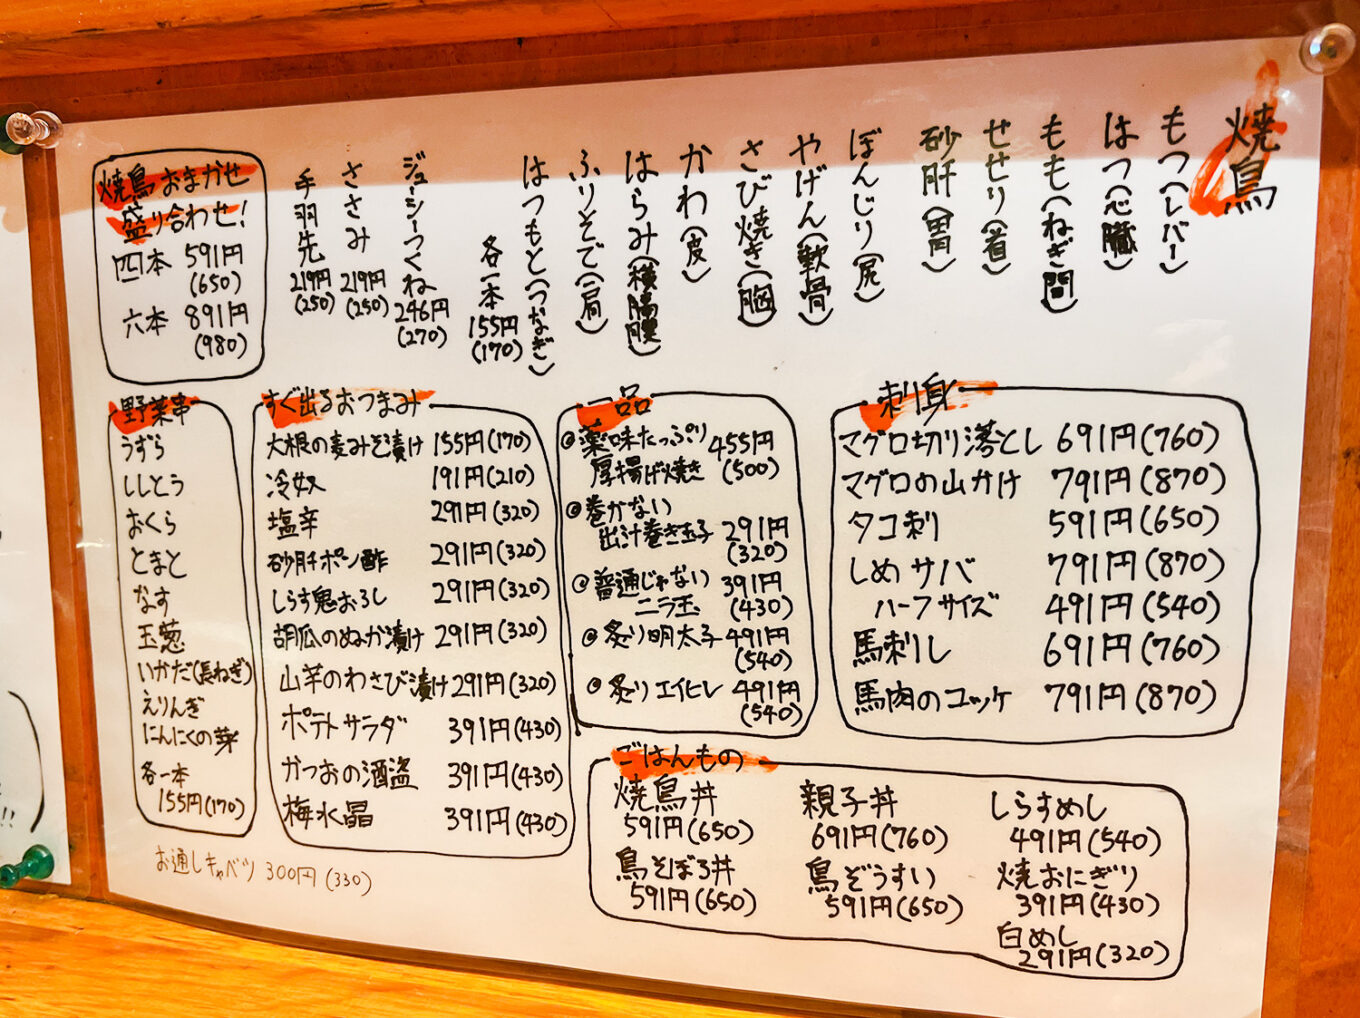 焼鳥
もつ(レバー)
はつ(心臓)
もも(ねぎ間)
せせり(首)
砂肝(胃)
ぼんじり(尻)
やげん(軟骨)
さび焼き(胸)
かわ(皮)
はらみ(横隔膜)
ふりそで(肩)
はつもと(つなぎ)
各一本
155円
(170)
ジューシーつくね
246円
(270)
ささみ
219円
(250)
手羽先
219円
(250)
焼鳥おまかせ
盛り合わせ!
四本 591円
(650)
六本 891円
(980)
野菜串
うずら
ししとう
おくら
とまと
なす
玉葱
いかだ(長ねぎ)
えりんぎ
にんにくの芽
各一本
155円(170)
すぐ出るおつまみ
大根の麦みそ漬け 155円(170)
冷奴 191円(210)
塩辛 291円(320)
砂肝ポン酢 291円(320)
しらす鬼おろし 291円(320)
胡瓜のぬか漬け 291円(320)
山芋のわさび漬け 291円(320)
ポテトサラダ 391円(430)
かつおの酒盗 391円(430)
梅水晶 391円(430)
一品
薬味たっぷり 455円
厚揚げ焼き (500)
巻かない
出汁巻き玉子 291円
(320)
普通じゃない 391円
ニラ玉 (430)
炙り明太子 491円
(540)
炙りエイヒレ 491円
(540)
刺身
マグロ切り落とし 691円(760)
マグロの山かけ 791円(870)
タコ刺 591円(650)
しめサバ 791円(870)
ハーフサイズ 491円(540)
馬刺し 691円(760)
馬肉のユッケ 791円(870)
ごはんもの
焼鳥丼
591円(650)
親子丼
691円(760)
しらすめし
491円(540)
鳥そぼろ丼
591円(650)
鳥ぞうすい
591円(650)
焼おにぎり
391円(430)
白めし
291円(320)
お通しキャベツ 300円(330)
!!